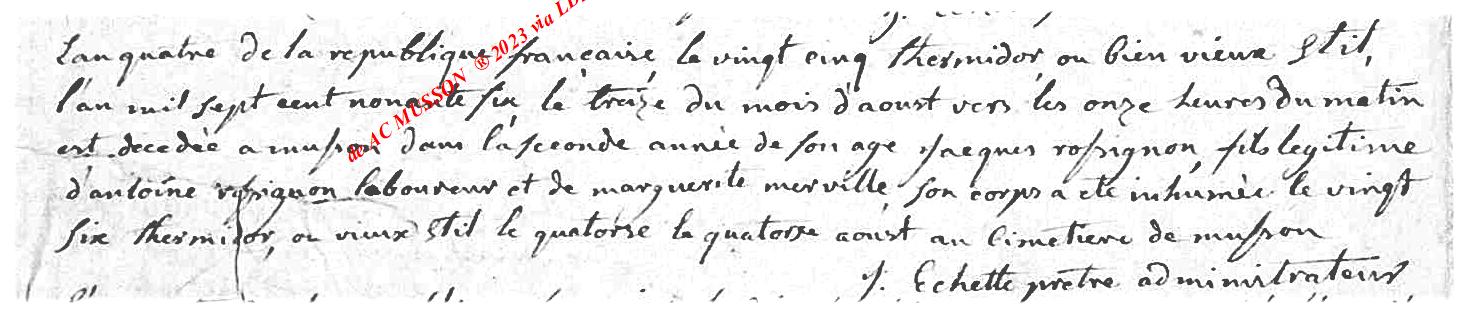 de AC MUSSON ®2023 via
L'an quatre de la republique françaire, le vingt cinq thermidor, ou bien vieux stil,
l'an mil sept cent nonante six le treize du mois d'aoust vers les onze heures du matin
est decedée a musson dans la seconde année de son age jacques rossignon, fils legitime
d'antoine rossignon laboureur et de marguerite merville, son corps a eté inhumée le vingt
six thermidor, ou vieux stil le quatorse le quatorse aoust au cimetiere de musson
j. Echette prêtre administrateur